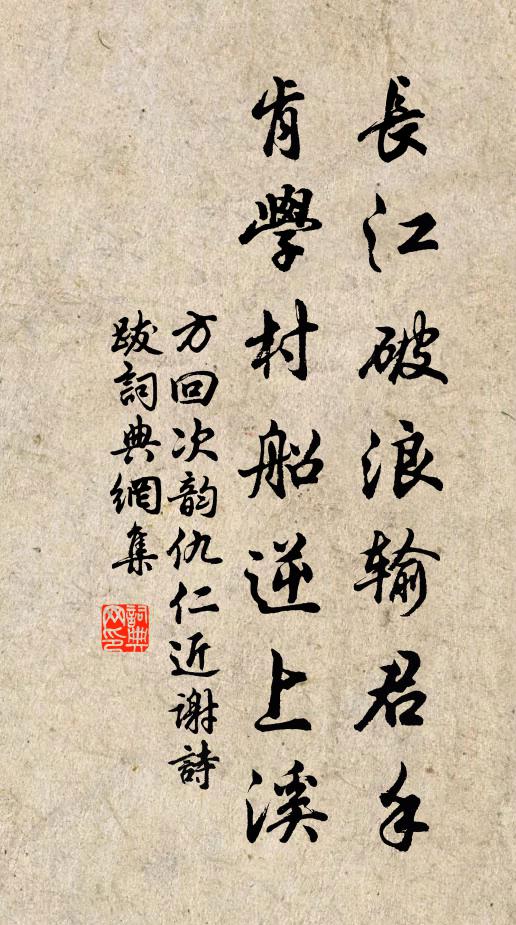 長江破浪输君手
肯學村船逆上溪
方回次韵仇仁近谢詩
跋詞典網集
詞典网印